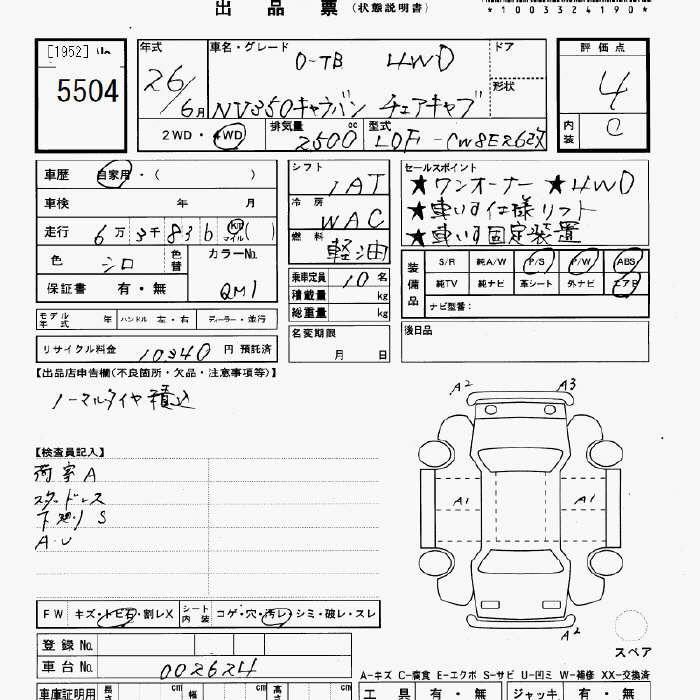 出品票 (状態説明書)
*1003324190*
[1952]
5504
年式 26/6月
車名・グレード D-TB 4WD
NV350キャラバン チェアキャブ
ドア
形状
評価点 4
内装 C
2WD・4WD 排気量 2500 cc 型式 LDF-CW8E26改
車歴 自家用・( )
車検 年 月
走行 6万3千836 Km マイル ( )
色 シロ 色替 カラーNo. QM1
保証書 有・無
シフト IAT
冷房 WAC
燃料 軽油
乗車定員 10名
積載量 kg
総重量 kg
セールスポイント
★ワンオーナー ★4WD
★車いす仕様リフト
★車いす固定装置
装備品 S/R 純A/W P/S P/W ABS
純TV 純ナビ 革シート 外ナビ エアB
ナビ型番:
モデル年式 年 ハンドル 左・右 ディーラー・並行
リサイクル料金 10,940 円 預託済
名変期限
月 日
後日品
【出品店申告欄(不良箇所・欠品・注意事項等)】
ノーマルタイヤ積込
【検査員記入】
荷室A
スタッドレス
下廻りS
A・U
A2 A3
A1 A1
A2
スペア
FW キズ・トビ石・割レX シート内装 コゲ・穴・汚レ・シミ・破レ・スレ
登録No.
車台No. 002624
A-キズ C-腐食 E-エクボ S-サビ U-凹ミ W-補修 XX-交換済
車庫証明用 長さ cm 幅 cm 高さ cm
工具 有・無 ジャッキ 有・無